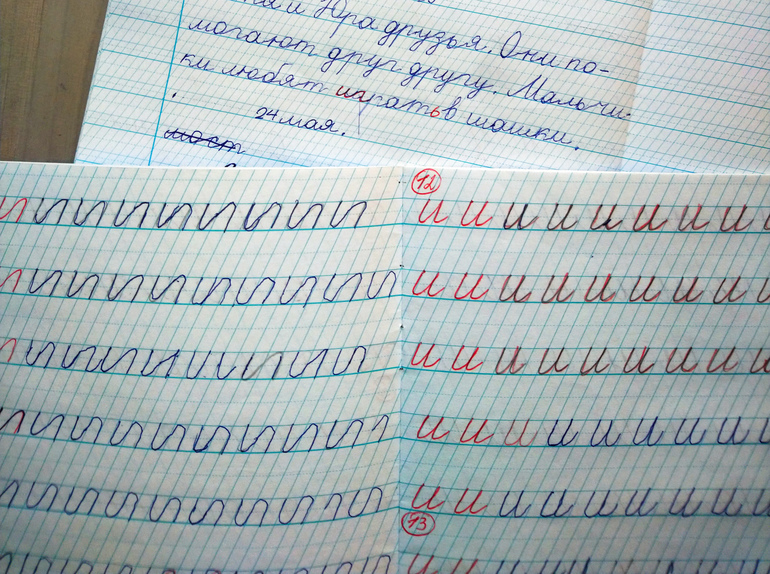 и Юра друзья. Они по-
могают друг другу. Мальчи-
ки любят играть в шашки.
24 мая.
мост
12
и и и и и и и и
и и и и и и и и
и и и и и и и и
и и и и и и и и
и и и и и и и и
13